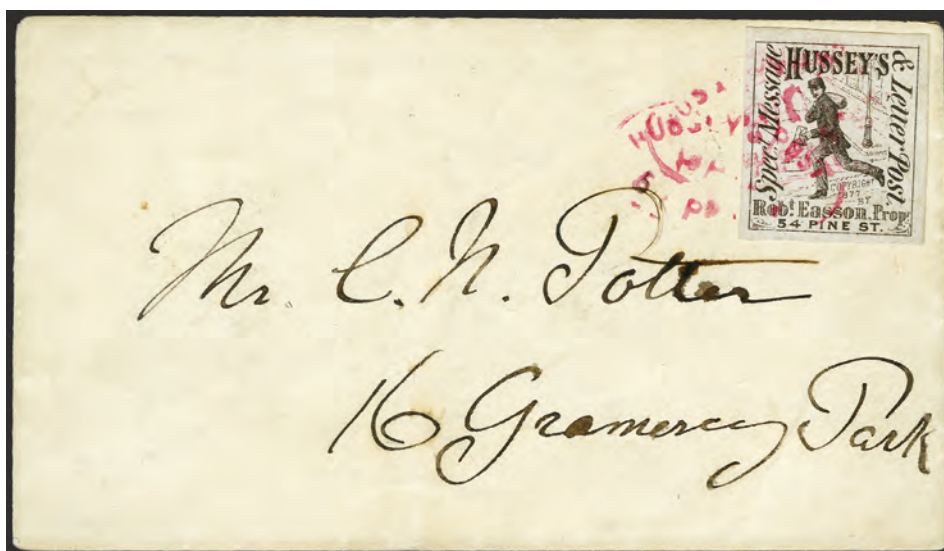 HUSSEY'S
Specl Message
& Letter Post.
COPYRIGHT
1877
BY
Robt. Easson. Prop
54 PINE ST.
Mr. C. N. Potter
16 Gramercy Park